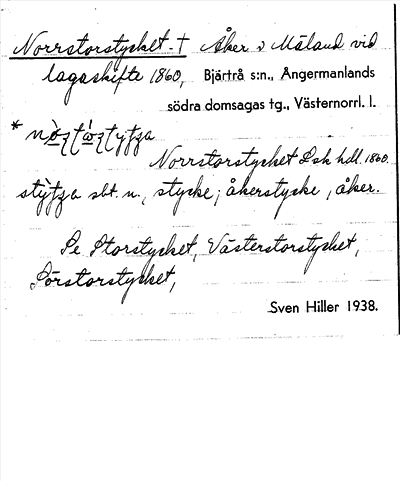 Norrstorstycket † Åker v Måland vid
lagaskifte 1860, Bjärtrå s:n., Ångermanlands
södra domsagas tg., Västernorrl. l.
Norrstorstycket Lsk hdl. 1860.
sbt. n., stycke; åkerstycke, åker.
Se Storstycket, Västerstorstycket,
Sörstorstycket,
Sven Hiller 1938.